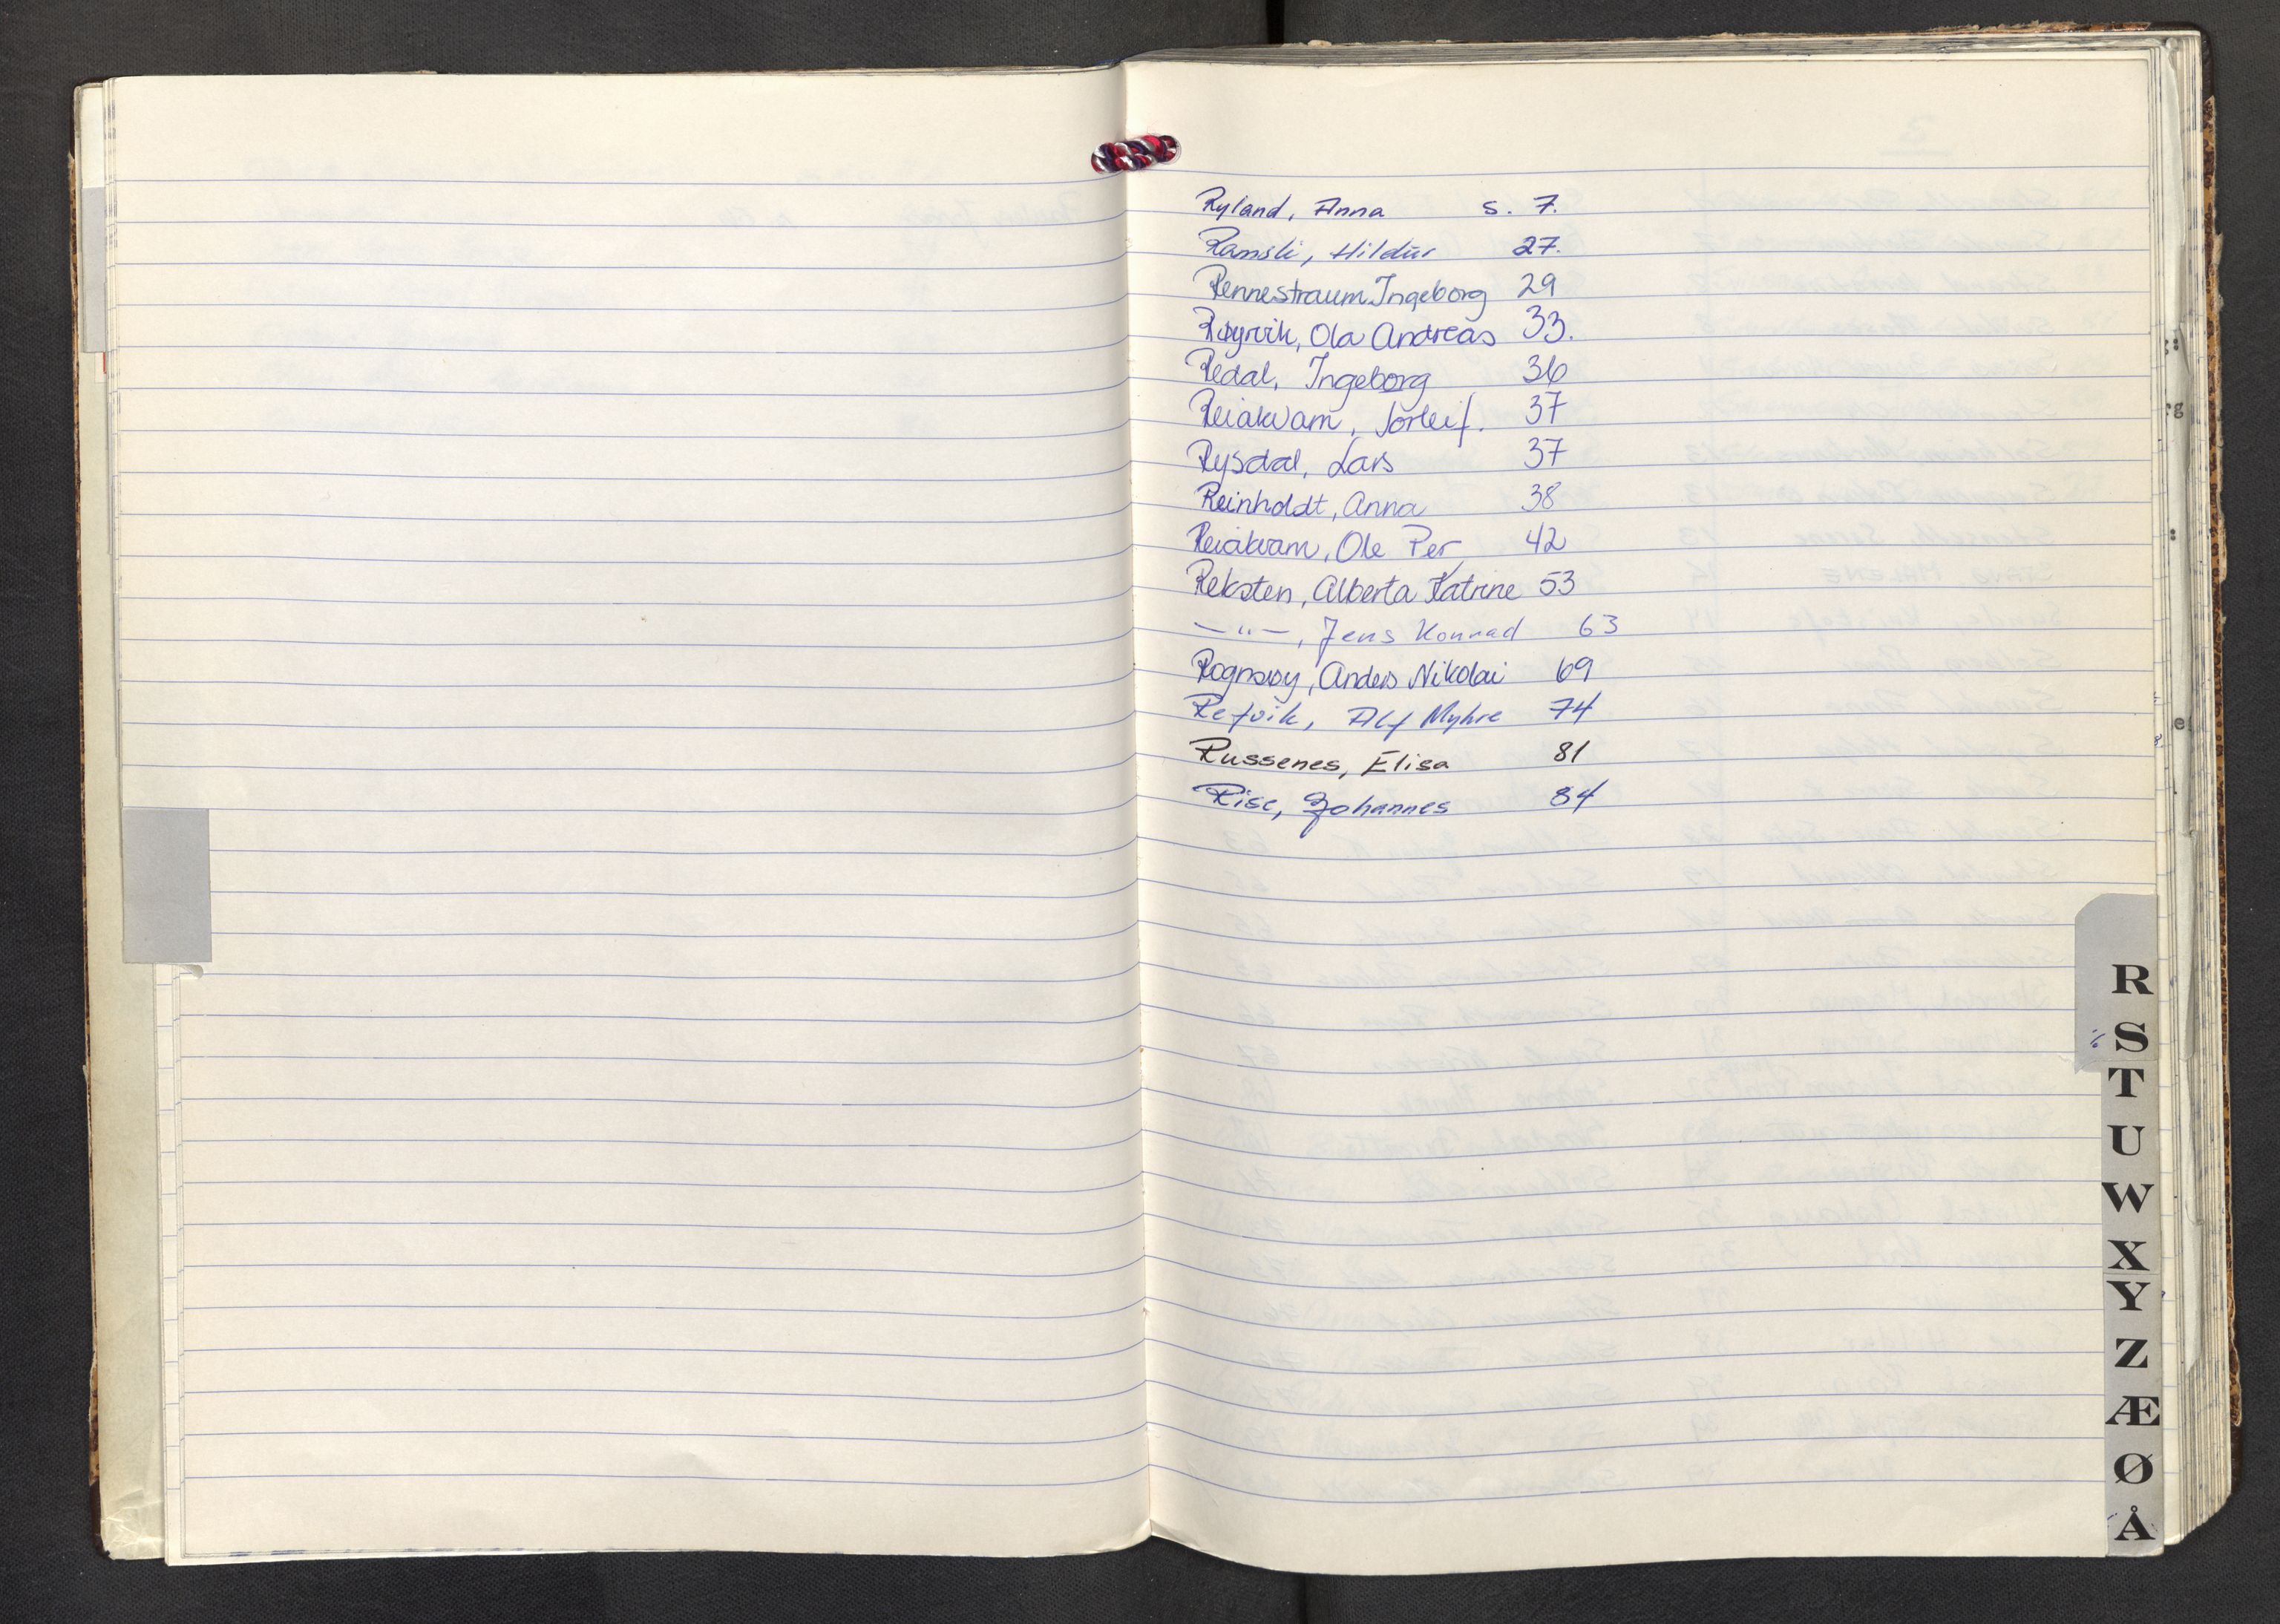 Ryland, Anna s. 7.
Ramsli, Hildur 27.
Rennestraum Ingeborg 29
Røyrvik, Ola Andreas 33.
Redal, Ingeborg 36
Reiakvam, Torleif. 37
Rysdal, Lars 37
Reinholdt, Anna 38
Reiakvam, Ole Per 42
Reksten, Alberta Katrine 53
— " —, Jens Konrad 63
Rognsøy, Anders Nikolai 69
Refvik, Alf Myhre 74
Russenes, Elisa 81
Rise, Johannes 84
R
S
T
U
W
X
Y
Z
Æ
Ø
Å